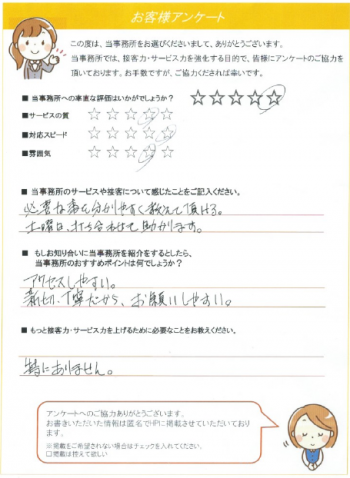 お客様アンケート
この度は、当事務所をお選びくださいまして、ありがとうございます。
当事務所では、接客力・サービス力を強化する目的で、皆様にアンケートのご協力を
頂いております。お手数ですが、ご協力くだされば幸いです。
■ 当事務所への率直な評価はいかがでしょうか? ☆☆☆☆☆
■サービスの質 ☆☆☆☆☆
■対応スピード ☆☆☆☆☆
■雰囲気 ☆☆☆☆☆
■ 当事務所のサービスや接客について感じたことをご記入ください。
必要な事を分かりやすく教えて頂ける。
土曜日、打ち合わせで助かります。
■ もしお知り合いに当事務所を紹介をするとしたら、
当事務所のおすすめポイントは何でしょうか?
アクセスしやすい。
親切、丁寧だから、お願いしやすい。
■もっと接客力・サービス力を上げるために必要なことをお教えください。
特にありません。
アンケートへのご協力ありがとうございます。
お書きいただいた情報は匿名でHPに掲載させていただいており
ます。
※掲載をご希望されない場合はチェックを入れてください。
□掲載は控えて欲しい